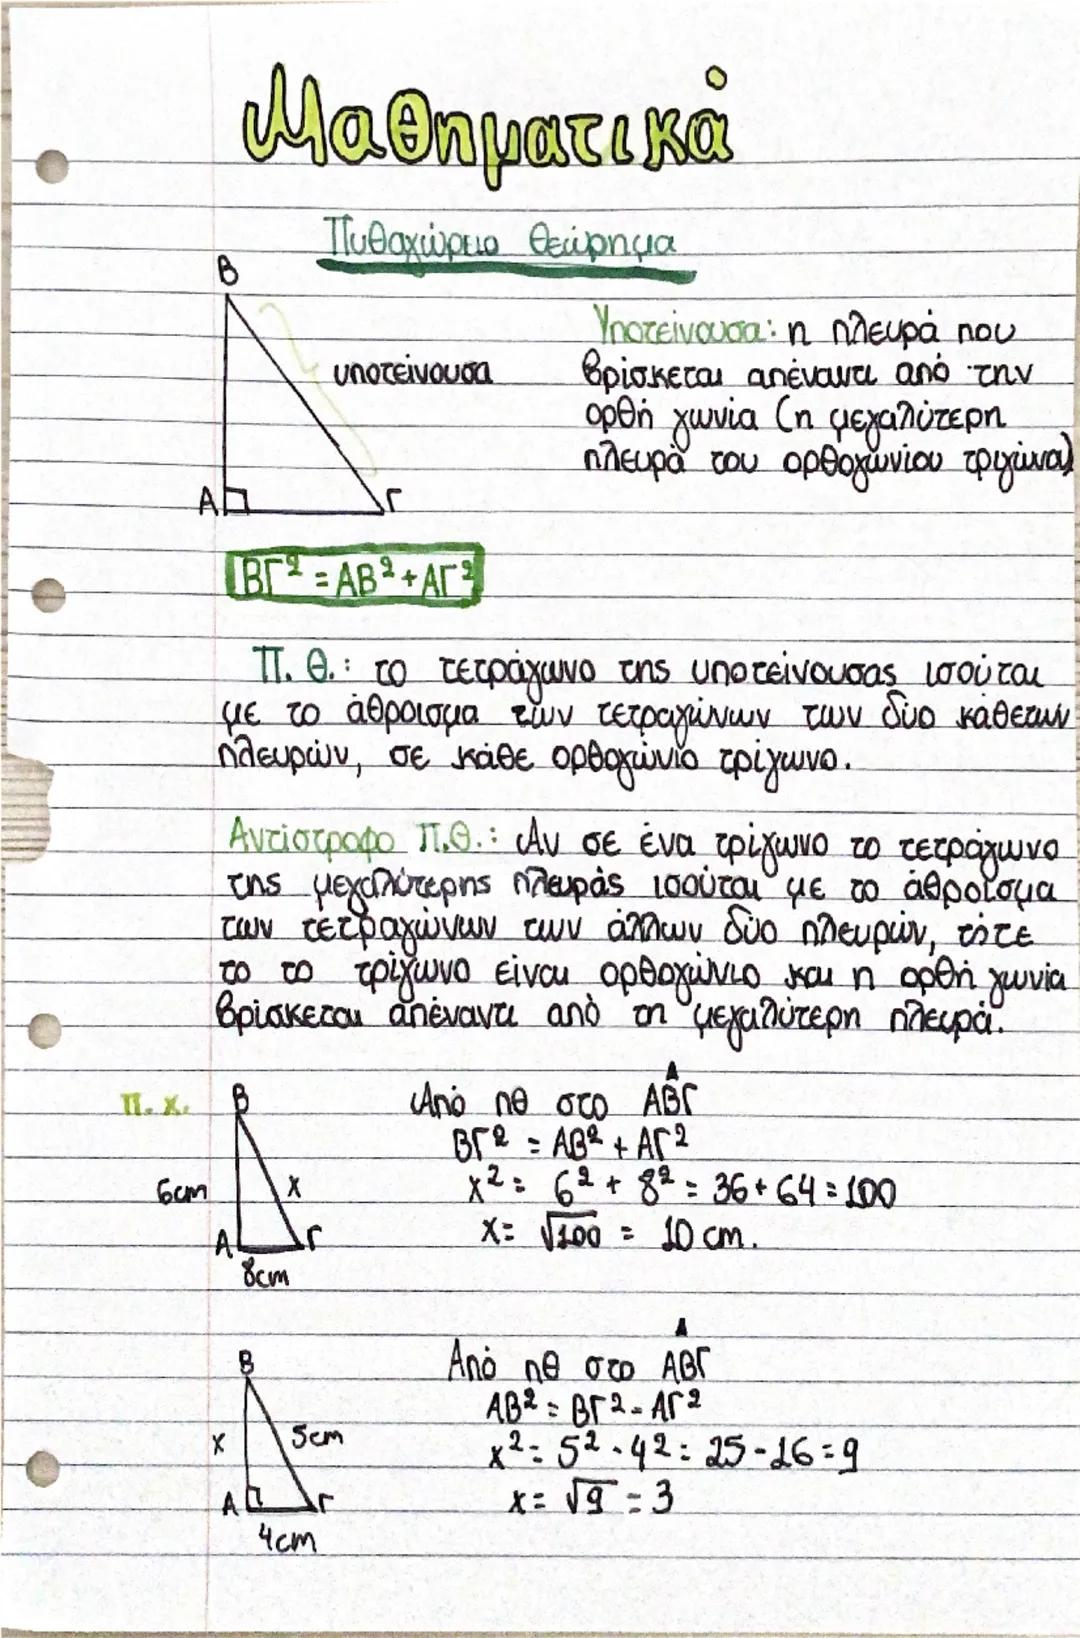 Μαθηματικά
Πυθαγώρειο Θεώρημα
Β
υποτείνουσα
Α Γ
Υποτείνουσα: η πλευρά που
βρίσκεται απέναντι από την
ορθή γωνία (η μεγαλύτερη
πλευρά του ορθογωνίου τριγώνου)
ΒΓ² = ΑΒ² + ΑΓ²
Π. Θ.: το τετράγωνο της υποτείνουσας ισούται
με το άθροισμα των τετραγώνων των δύο κάθετων
πλευρών, σε κάθε ορθογώνιο τρίγωνο.
Αντίστροφο Π.Θ.: Αν σε ένα τρίγωνο το τετράγωνο
της μεγαλύτερης πλευράς ισούται με το άθροισμα
των τετραγώνων των άλλων δύο πλευρών, τότε
το το τρίγωνο είναι ορθογώνιο και η ορθή γωνία
βρίσκεται απέναντι από τη μεγαλύτερη πλευρά.
Π. Χ.
Β
6cm
x
Α Γ
8cm
Από πθ στο ΑΒΓ
ΒΓ² = ΑΒ² + ΑΓ²
x² = 6² + 8² = 36 + 64 = 100
x = √100 = 10 cm.
Β
x
5cm
Α Γ
4cm
Από πθ στο ΑΒΓ
ΑΒ² = ΒΓ² - ΑΓ²
x² = 5² - 4² = 25 - 16 = 9
x = √9 = 3